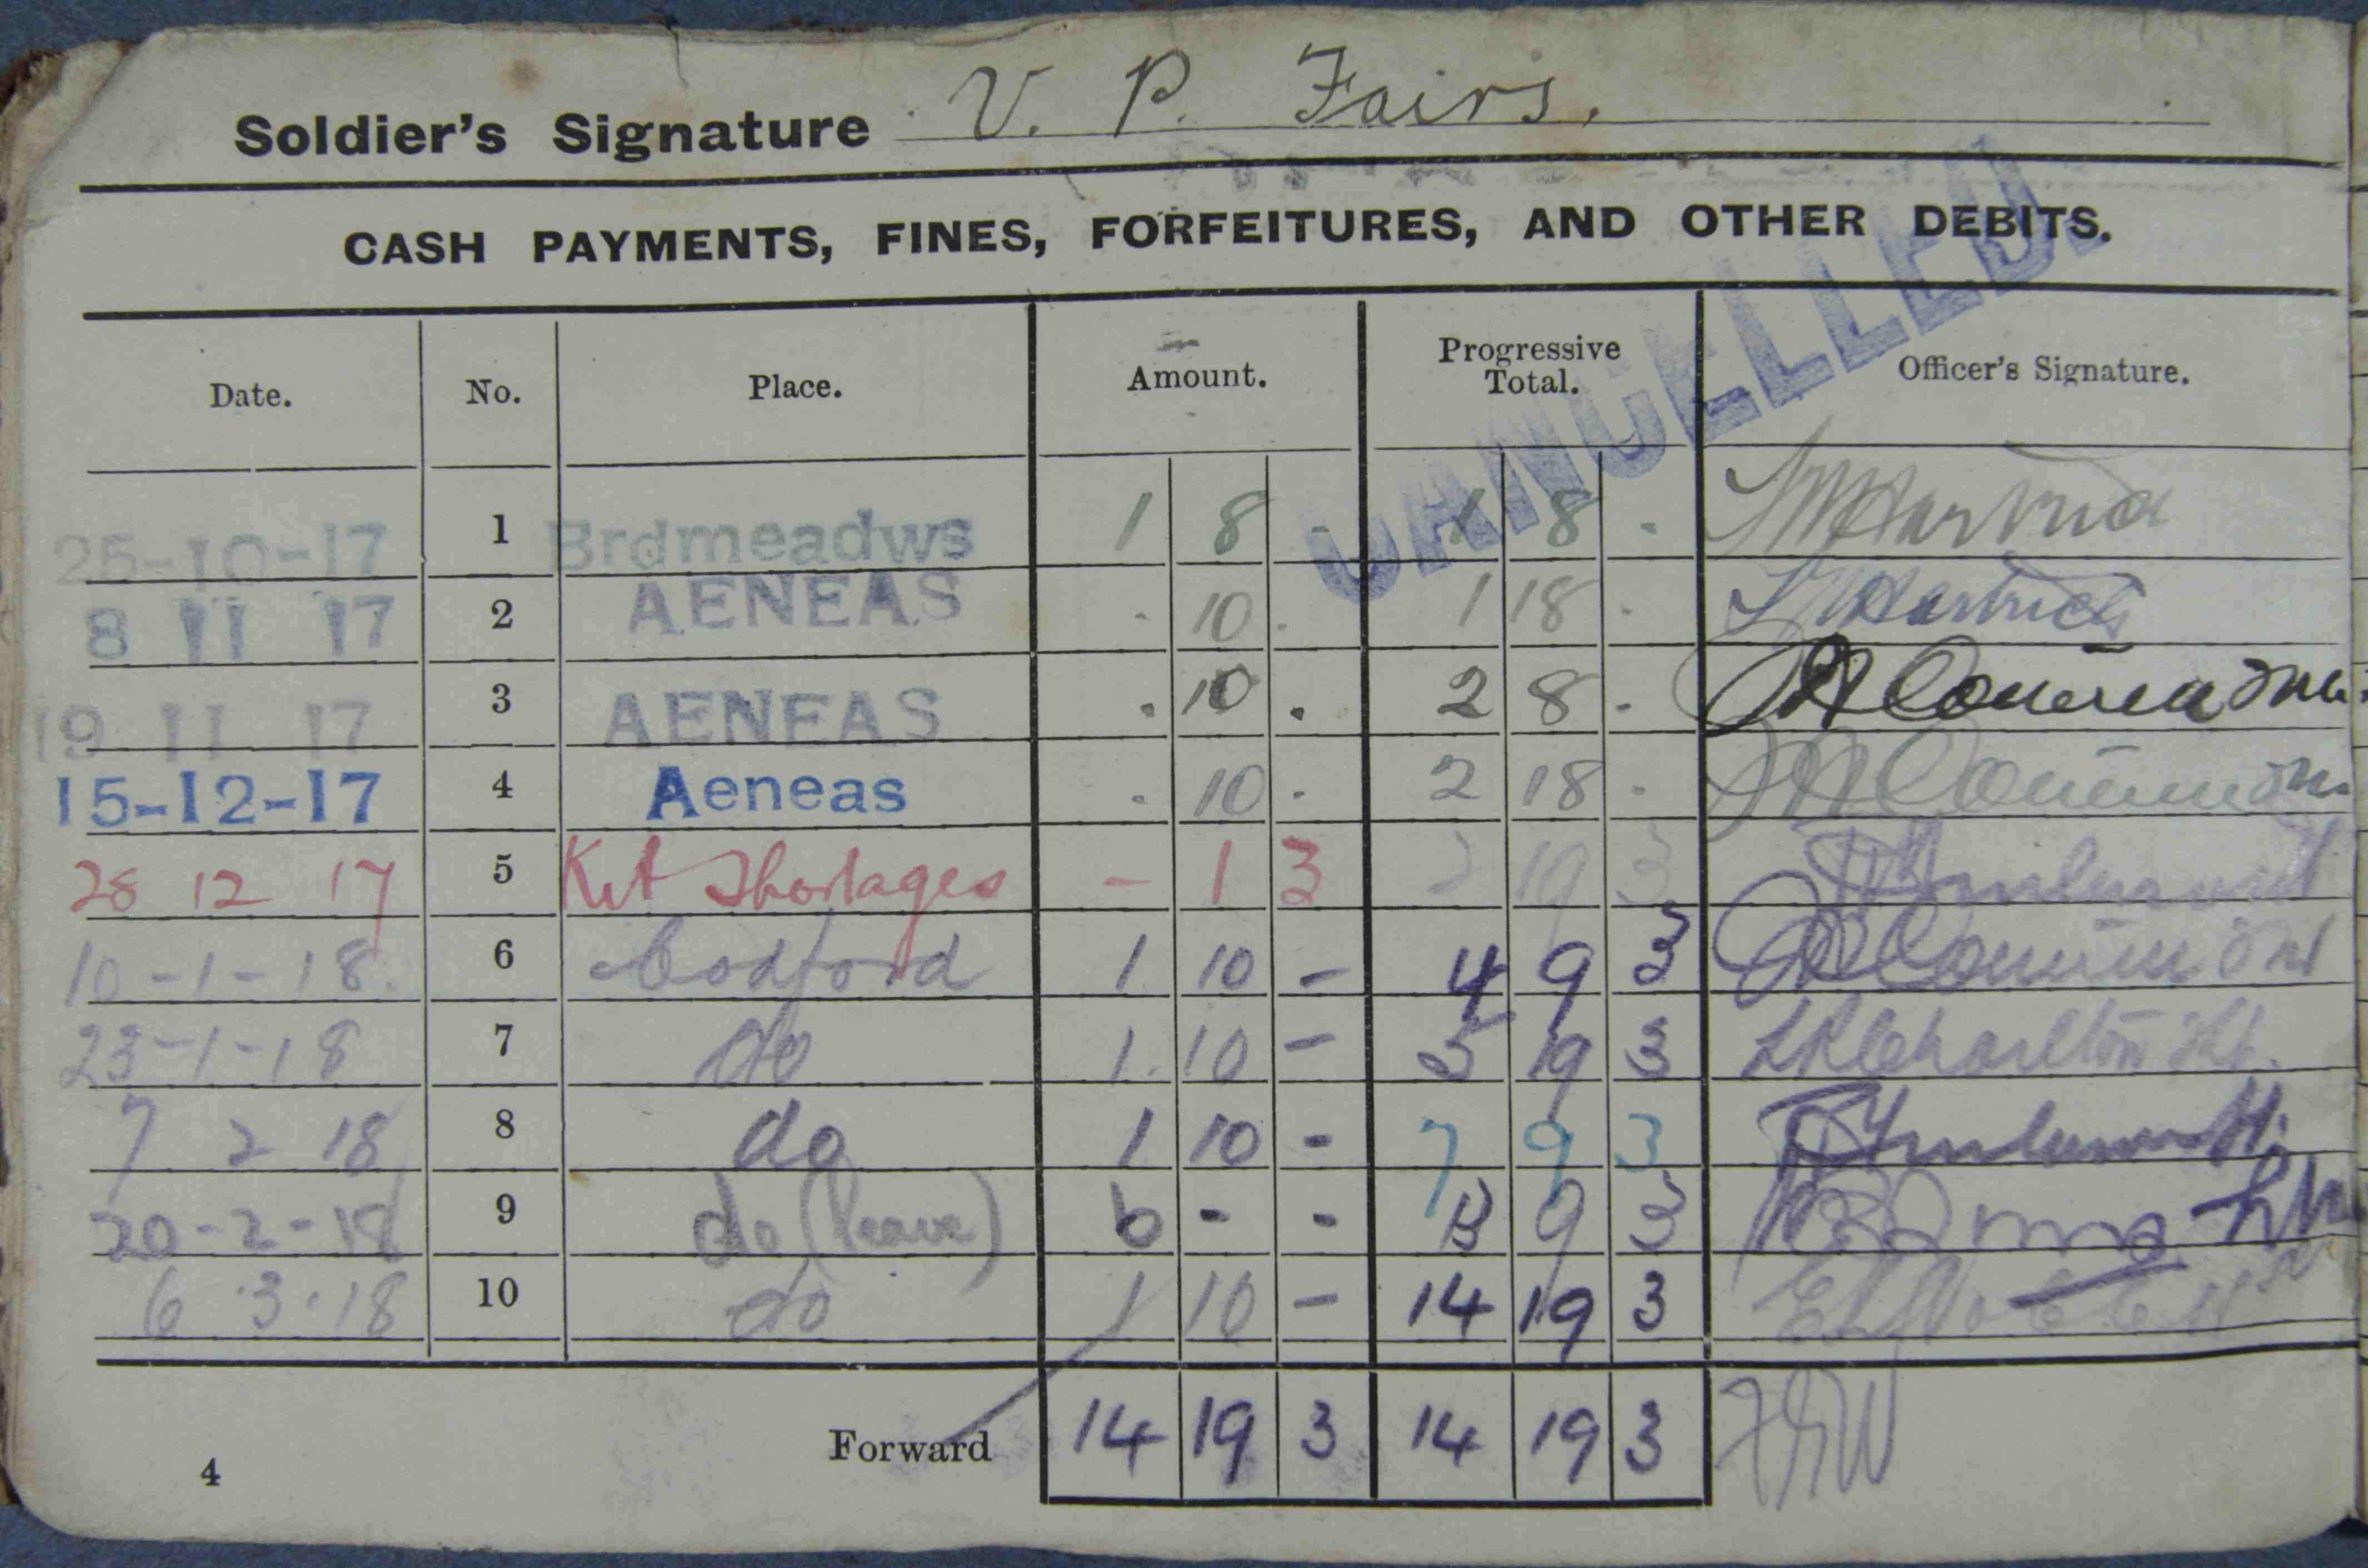 Soldier's Signature V. P. Fairs.
CASH PAYMENTS, FINES, FORFEITURES, AND OTHER DEBITS.
CANCELLED.
Date. No. Place. Amount. Progressive Total. Officer's Signature.
25-10-17 1 Brdmeadws 1 8 - 1 8 -
8 11 17 2 AENEAS . 10 . 1 18 -
19 11 17 3 AENEAS . 10 . 2 8 -
15-12-17 4 Aeneas . 10 . 2 18 -
28 12 17 5 Kit Shortages - 1 3 2 19 3
10-1-18. 6 Codford 1 10 - 4 9 3
23-1-18 7 do 1. 10 - 5 19 3
7 2 18 8 do 1 10 - 7 9 3
20-2-18 9 do (leave) 6 - - 13 9 3
6.3.18 10 do 1 10 - 14 19 3
Forward 14 19 3 14 19 3
4